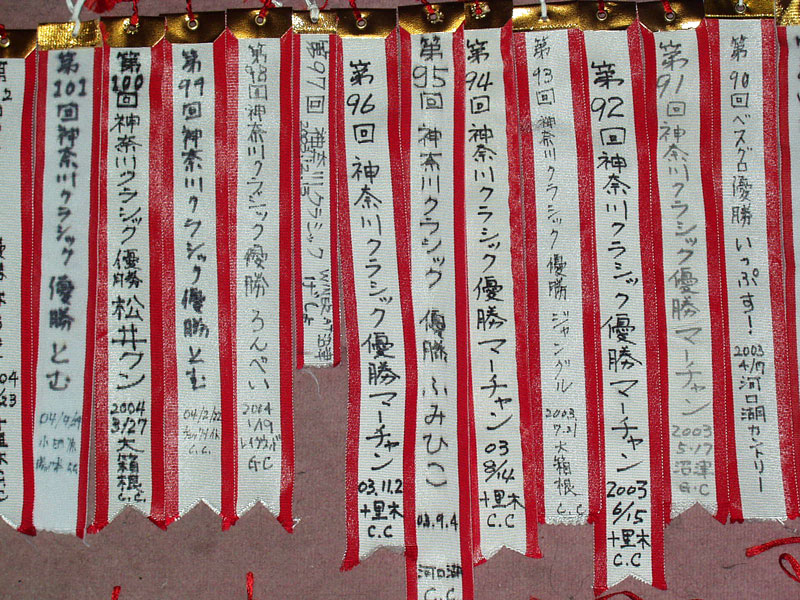 第90回ベスグロ優勝 いっぷす!
2003
4/17
河口湖カントリー
第91回神奈川クラシック優勝マーチャン
2003
5.17
沼津
G.C
第92回神奈川クラシック優勝マーチャン
2003
6/15
十里木
C.C
第93回 神奈川クラシック 優勝 ジャングル
2003
7.21
大箱根
C.C
第94回 神奈川クラシック優勝マーチャン
03
8/14
十里木
C.C
第95回 神奈川クラシック 優勝 ふみひこ
03.9.4
河口湖
C.C
第96回 神奈川クラシック優勝マーチャン
03.11.2
十里木
C.C
第97回 神奈川クラシック
第98回神奈川クラシック 優勝 ろんべい
2004
1/19
G.C
第99回神奈川クラシック優勝とむ
04/2/22
C.C.
第100回 神奈川クラシック 優勝 松井クン
2004
3/27
大箱根
C.C.
第101回神奈川クラシック 優勝 とむ